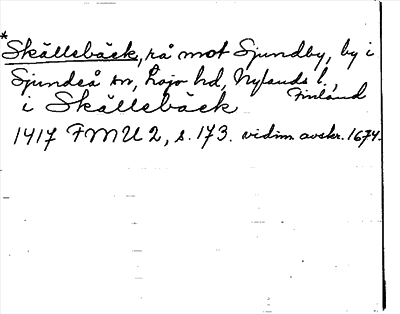 * Skällsbäck, rå mot Sjundby, by i
Sjundeå sn, Lojo hd, Nylands l.,
Finland
i Skällsbäck
1417 FMU 2, s. 173. vidim. avskr. 1674.